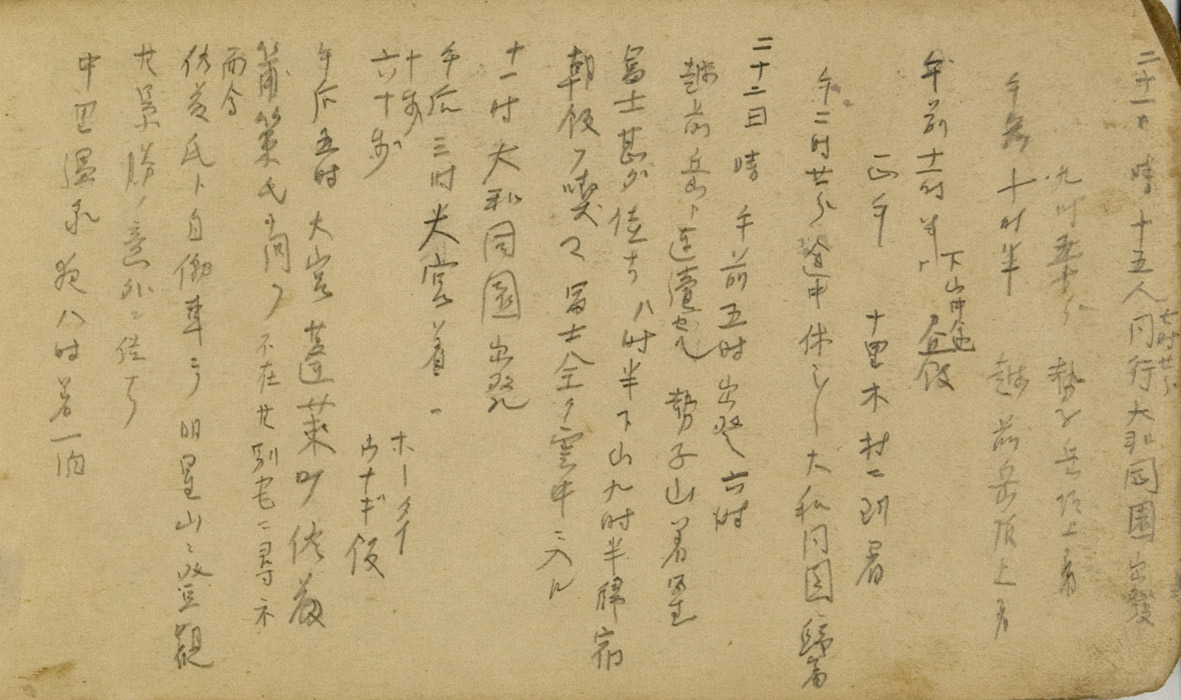 二十一日 晴 十五人同行大和同園出発
七時廿分
九時五十分 勢子岳頂上着
午前十時半 越前岳頂上着
午前十一時半 下山中途
昼飯
正午 十里木村ニ到着
午二時廿分 途中休シ 大和同園ニ帰着
二十二日 晴 午前五時出発 六時
越前岳ト連瓊也 勢子山着 望
富士甚ダ佳ナリ 八時半下山 九時半帰宿
朝飯ヲ喫ス 冨士全ク雲中ニ入ル
十一時大和同園出発
午后三時大宮着
十歩
六十歩
ホータイ
ウナギ飯
午后五時 大宮 蓬莱町 佐藤
氏ヲ問フ 不在 其別宅ニ尋ネ
而今
佐藤氏ト自働車ニテ 明星山ニ登 観
其景勝ノ意外ニ佳ナリ
中里温泉 夜八時着一泊